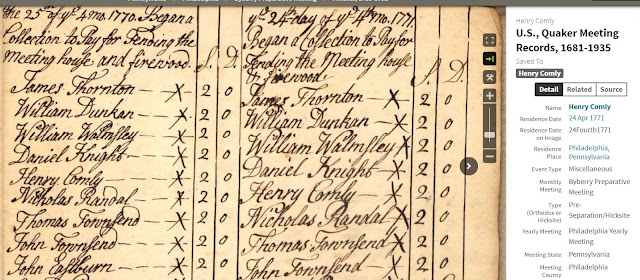 the 25th of ye 4 mo. 1770. Began a
Collection to Pay for Tending the
Meeting house and firewood. S. D.
James Thornton — X — 2 0
William Dunkan — X — 2 0
William Walmsley — X — 2 0
Daniel Knight — X — 2 0
Henry Comly — X — 2 0
Nicholas Randal — X — 2 0
Thomas Townsend — X — 2 0
John Townsend — X — 2 0
John Eastburn — X — 2 0
ye 24th day of ye 4th mo. 1771.
Began a Collection to Pay for
Tending the Meeting house
& firewood. S. D.
James Thornton — X 2 0
William Dunkan — X 2 0
William Walmsley X 2 0
Daniel Knight — X 2 0
Henry Comly — X 2 0
Nicholas Randal X 2 0
Thomas Townsend X 2 0
John Townsend — X 2 0
John
Henry Comly
U.S., Quaker Meeting
Records, 1681-1935
Saved To
Henry Comly
Detail Related Source
Name Henry Comly
Residence Date 24 Apr 1771
Residence Date on Image 24Fourth1771
Residence Place Philadelphia, Pennsylvania
Event Type Miscellaneous
Monthly Meeting Byberry Preparative Meeting
Type (Orthodox or Hicksite) Pre-Separation/Hicksite
Yearly Meeting Philadelphia Yearly Meeting
Meeting State Pennsylvania
Meeting County Philadelphia